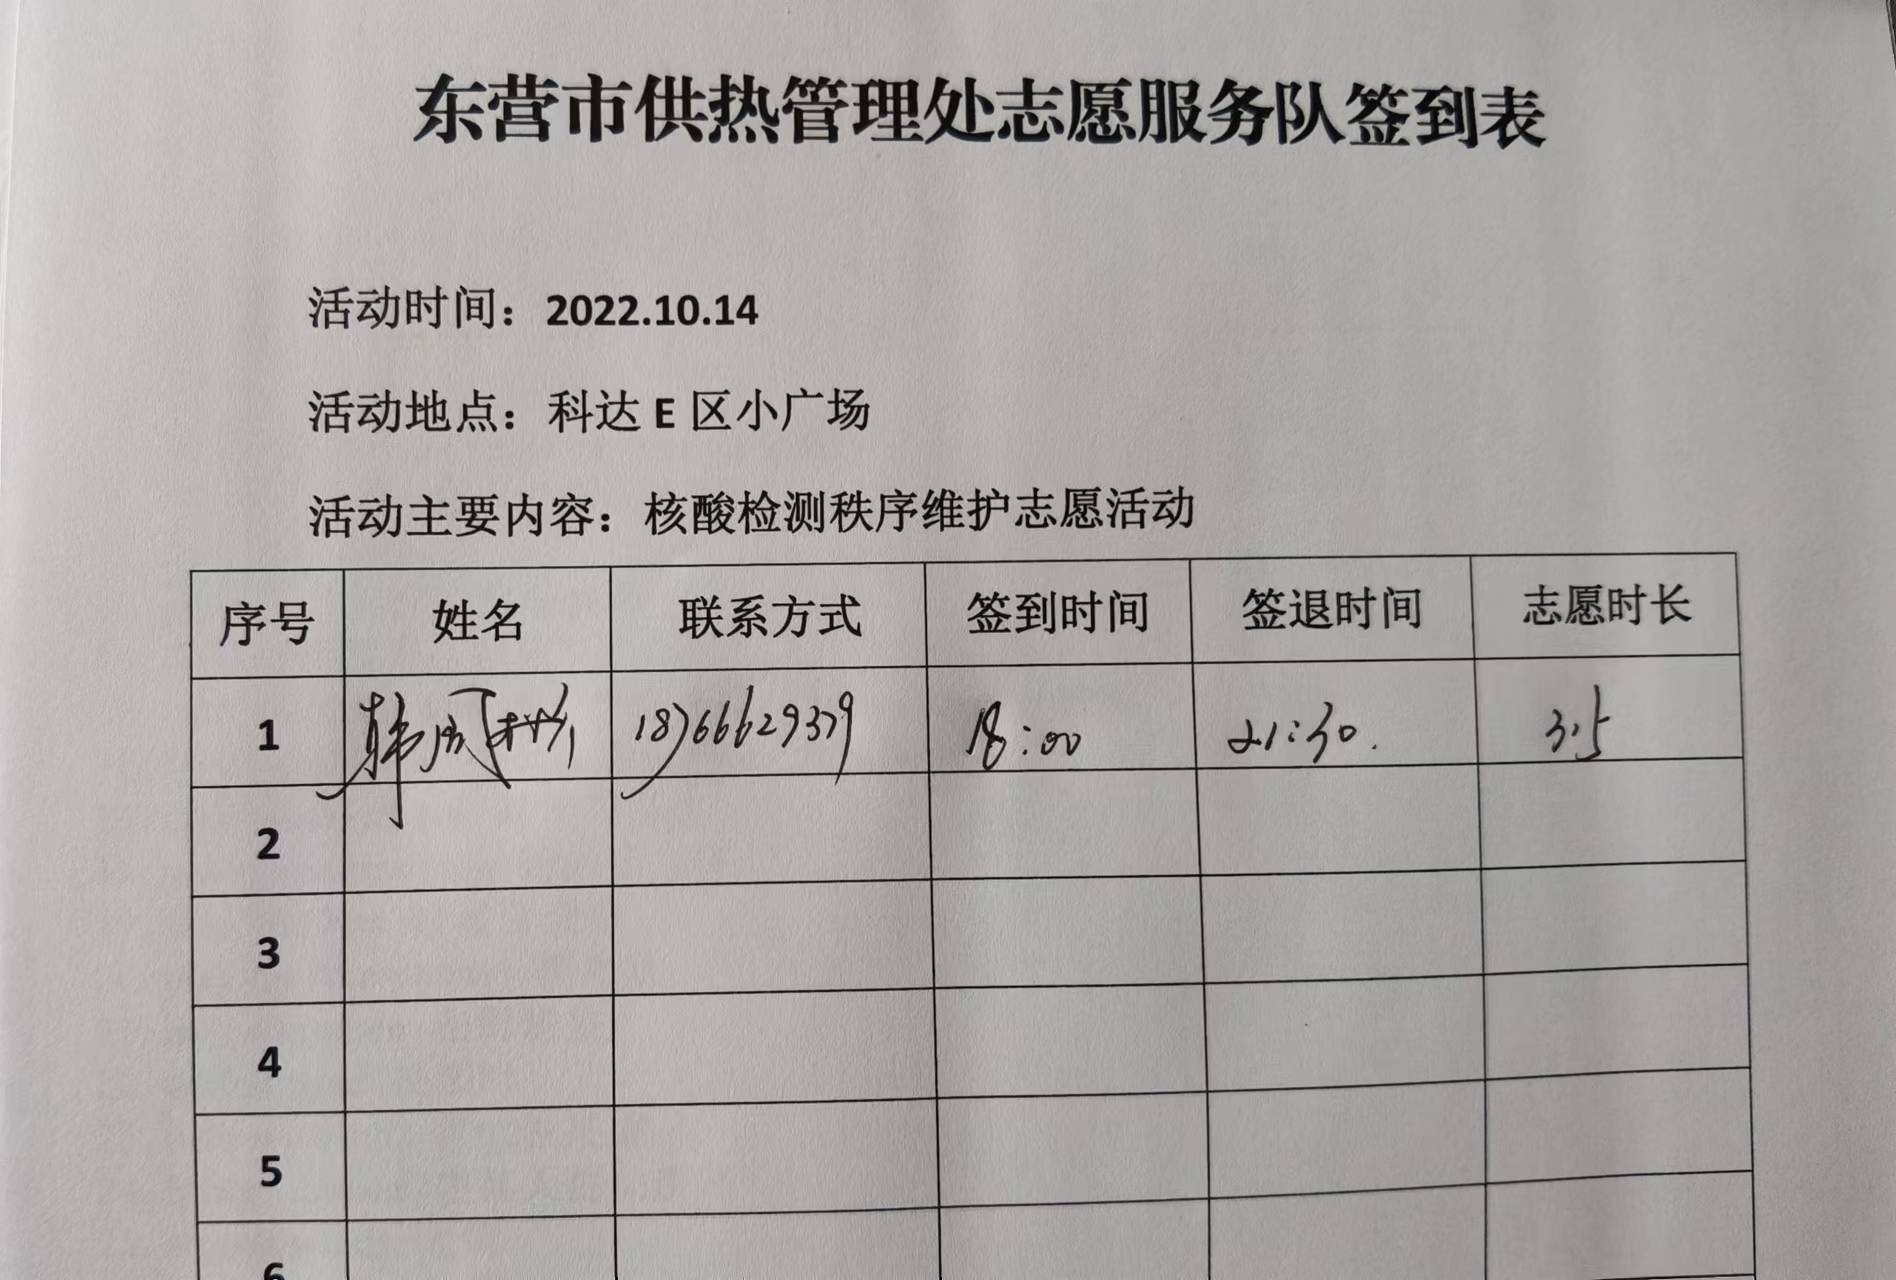 东营市供热管理处志愿服务队签到表
活动时间：2022.10.14
活动地点：科达 E 区小广场
活动主要内容：核酸检测秩序维护志愿活动
序号 姓名 联系方式 签到时间 签退时间 志愿时长
1 韩 18766629379 18:00 21:30. 3.5
2
3
4
5
6